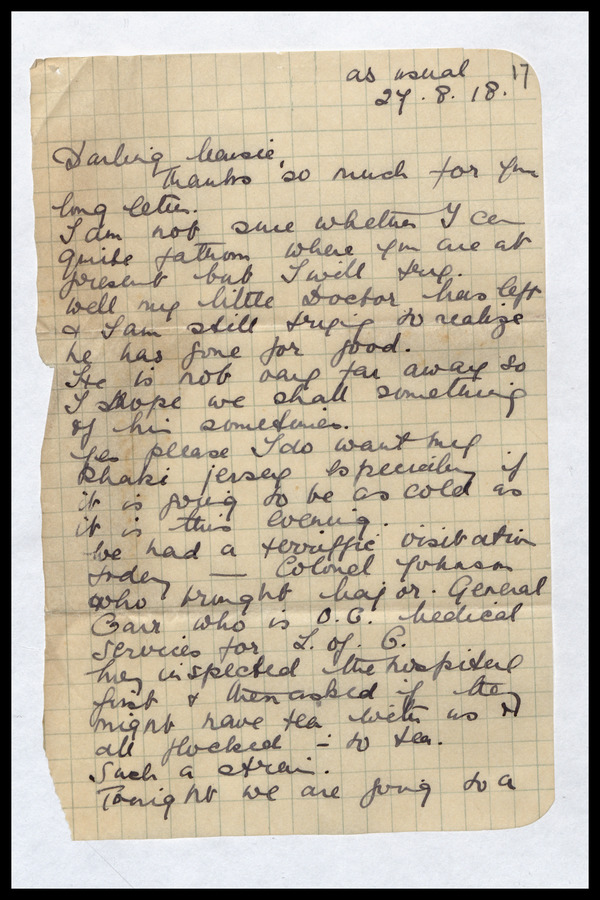 as usual 17
27. 8. 18.
Darling Mousie,
Thanks so much for your
long letter.
I am not sure whether I can
quite fathom where you are at
present but I will try.
Well my little Doctor has left
& I am still trying to realize
he has gone for good.
He is not very far away so
I hope we shall something
of him sometimes.
Yes please I do want my
Khaki jersey especially if
it is going to be as cold as
it is this evening.
We had a terriffic visitation
today — Colonel Johnson
who brought Major. General
Carr who is O.C. Medical
Services for L. of C.
They inspected the hospital
first & then asked if they
might have tea with us &
all flocked - to tea.
Such a strain.
Tonight we are going to a